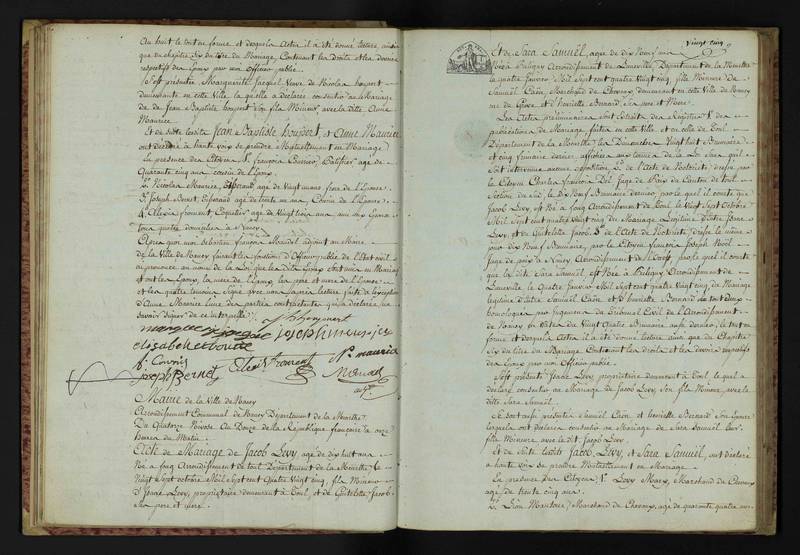 au huit le tout en forme et desquels Actes il a été donné lecture, ainsi
que du chapitre six du titre du Mariage, Contenant les droits et les devoirs
respectifs des Epoux par nous Officier public.
S'est présentée Marguerite Jacquel Veuve de Nicolas houpert
demeurante en cette Ville, laquelle a déclaré consentir au Mariage
de Jean Baptiste houpert son fils Mineur, avec la ditte Anne
Maurice
Et de suite lesdits Jean Baptiste houpert, et Anne Maurice
ont déclaré à haute voix se prendre Mutuellement en Mariage
En présence des Citoyens 1° françois Courier, age de
Quarante cinq ans cousin de l'Epoux
2° Nicolas Maurice, age de vingt ans frere de l'Epouse
3° Joseph Bernet age de trente ans, Cousin de l'Epouse
4° Alexis froment, age de Vingt trois ans ami des Epoux
tous quatre domiciliés à Nancy
Après quoi moi Sebastien françois Mandel adjoint au Maire
de la Ville de Nancy faisant les fonctions d'Officier public de l'Etat civil
ai prononcé au nom de la Loi que lesdits Epoux sont unis en Mariage
et ont les Epoux, la mere de l'Epoux les pere et mere de l'Epouse
et les quatre temoins signé avec nous après lecture faite à l'exception
d'Anne Maurice l'une des parties contractantes qui a déclaré ne
savoir signer de ce interpellée
houpert
elisabeth
f. Courier
joseph Bernet
Alexis froment
N. maurice
Mandel
adjt
Mairie de la Ville de Nancy
Arrondissement Communal de Nancy Département de la Meurthe
Du Quatorze Nivose An Douze de la République française à onze
heures du Matin
Acte de Mariage de Jacob Levy age de dix huit ans
Né à foug Arrondissement de toul Département de la Meurthe le
Vingt sept octobre Mil Sept cent Quatre Vingt cinq, fils Mineur
d'Isaac Levy, propriétaire demeurant à Toul, et de Guitelette Jacob
Ses pere et mere
Vingt Cinq
Et de Sara Samuël, age de dix Neuf ans
Née à Arrondissement de Luneville, Département de la Meurthe
le quatre fanvier Mil Sept cent quatre Vingt cinq fille Mineure de
Samuël Caën, Marchand de Chevaux, demeurant en cette Ville de Nancy
rue de Grève et henriette Bernard Ses pere et Mere
Les Actes préliminaires sont Extraits des Registres 1° des
publications de Mariage faites en cette Ville et en celle de Toul
Département de la Meurthe, les Dimanches Vingt huit Brumaire
et Cinq frimaire dernier, affichées aux termes de la Loi sans qu'il
soit intervenue aucune opposition 2° de l'Acte de Notoriété dressé par
le Citoyen Charles francois Juge de Paix du Canton de toul
Section du sud, le dix Neuf Brumaire dernier, par lequel il conste que
Jacob Levy, est Né à foug Arrondissement de Toul le Vingt Sept Octobre
Mil Sept cent quatre vingt cinq du Mariage Légitime d'entre Isaac
Levy, et de Guitelette Jacob 3° de l'Acte de Notoriété, dressé le même
jour dix Neuf Brumaire, par le Citoyen françois Joseph Noël
Juge de paix à Nancy Arrondissement de l'Ouest, par lequel il conste
que la dite Sara Samuël, est Née à Arrondissement de
Luneville le Quatre fanvier Mil Sept cent quatre vingt cinq du Mariage
légitime d'entre Samuël Caën et henriette Bernard les tout deux
homologués par Jugement du tribunal Civil de l'Arrondissement
de Nancy en date du Vingt Quatre Brumaire aussi dernier, le tout en
forme et desquels Actes il a été donné lecture ainsi que du Chapitre
Six du titre du Mariage Contenant les droits et les devoirs respectifs
des Epoux par nous Officier public.
S'est présenté Isaac Levy, propriétaire demeurant à Toul, lequel a
déclaré consentir au Mariage de Jacob Levy, Son fils Mineur, avec la
dite Sara Samuël
Se sont aussi présentés Samuël Caën et henriette Bernard Son épouse
lesquels ont déclaré consentir au Mariage de Sara Samuël leur
fille Mineure avec le dit Jacob Levy
Et de suite lesdits Jacob Levy, et Sara Samuël, ont déclaré
à haute voix se prendre Mutuellement en Mariage
En présence des Citoyens, 1° Levy Marx, Marchand de Chevaux
age, de trente cinq ans
2° Marchand de Chevaux, age de quarante quatre ans